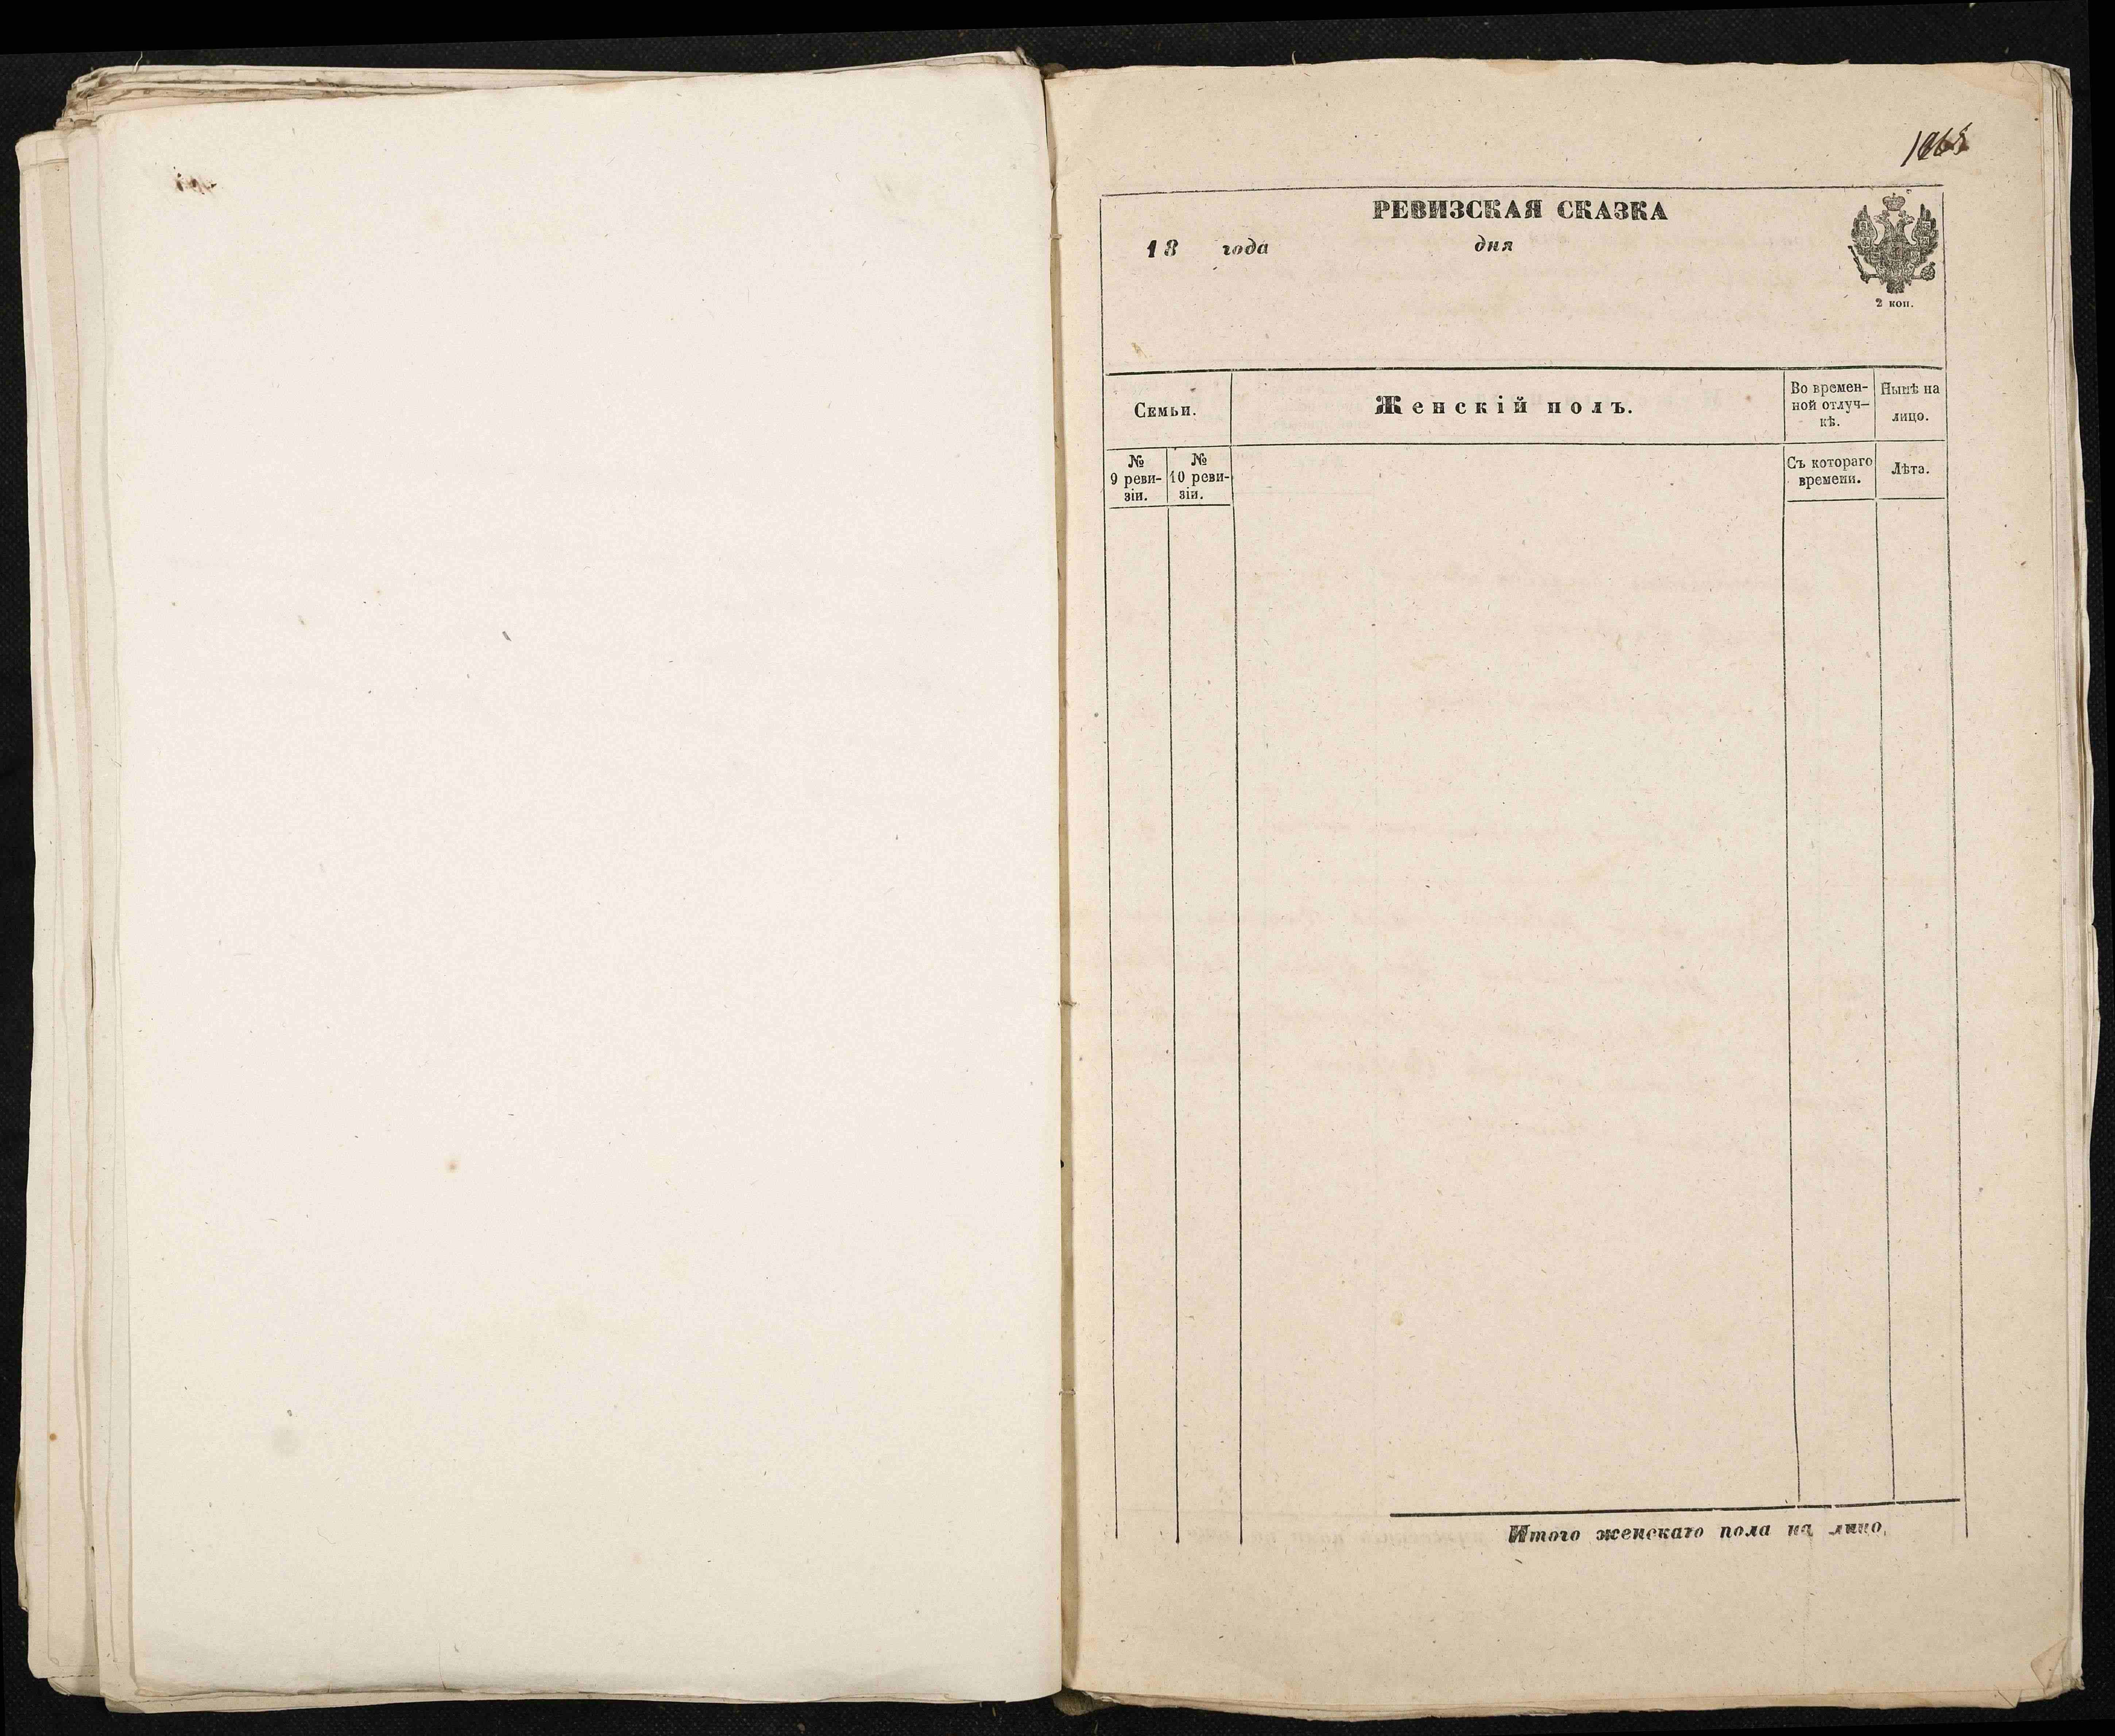 РЕВИЗСКАЯ СКАЗКА
18 года дня
2 коп.
Семьи.
Женскій полъ.
Во времен-
ной отлуч-
кѣ.
Нынѣ на
лицо.
№
9 реви-
зіи.
№
10 реви-
зіи.
Съ котораго
времени.
Лѣта.
Итого женскаго пола на лицо.